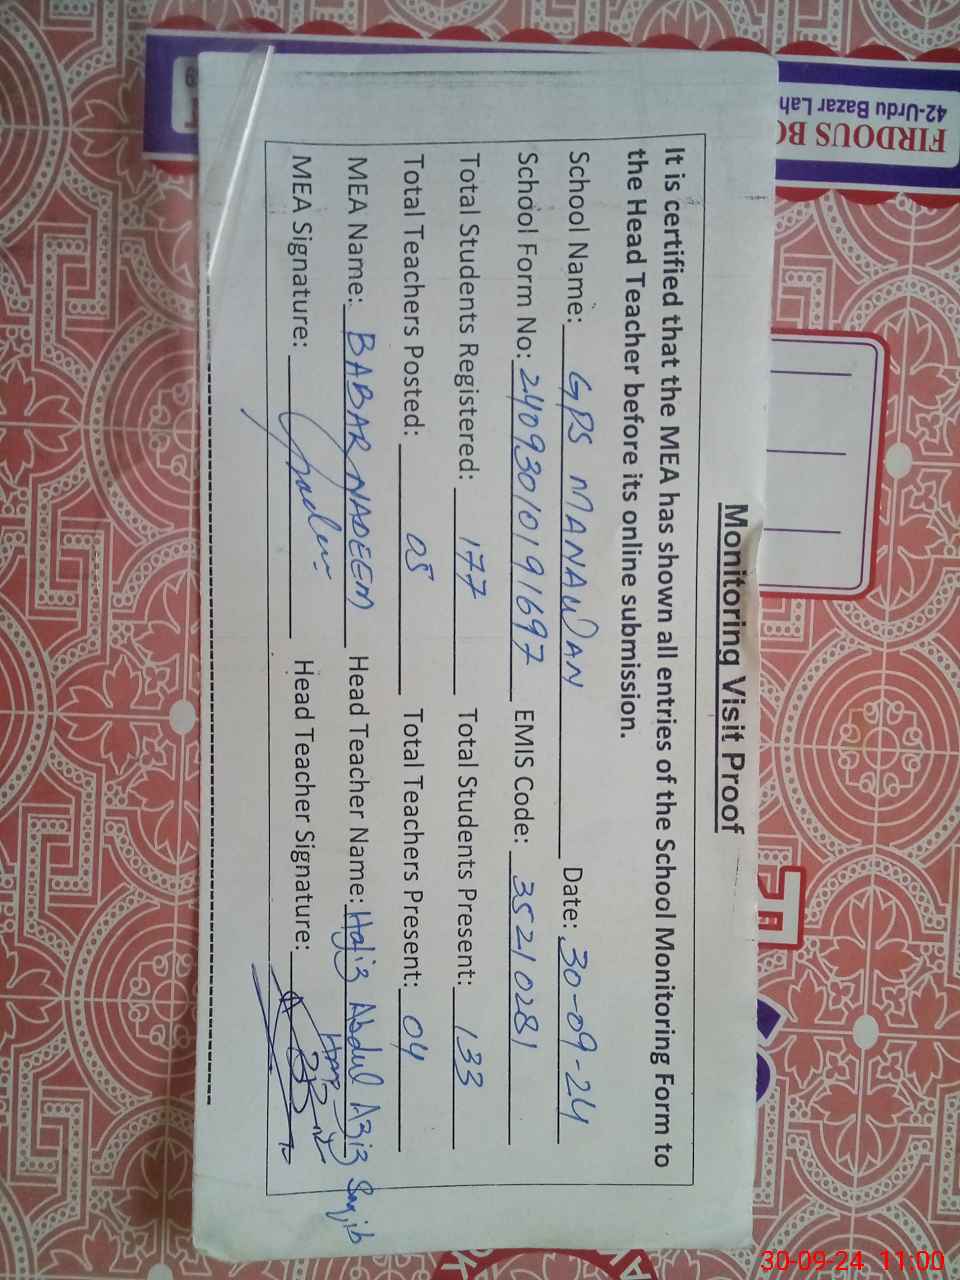 Monitoring Visit Proof
It is certified that the MEA has shown all entries of the School Monitoring Form to
the Head Teacher before its online submission.
School Name: GPS MANAWAN Date: 30-09-24
School Form No: 24093010191697 EMIS Code: 35210281
Total Students Registered: 177 Total Students Present: 133
Total Teachers Posted: 05 Total Teachers Present: 04
MEA Name: BABAR NADEEM Head Teacher Name: Hafiz Abdul Aziz Saqib
MEA Signature: Head Teacher Signature:
FIRDOUS BO
42-Urdu Bazar Lah
30-09-24 11:00